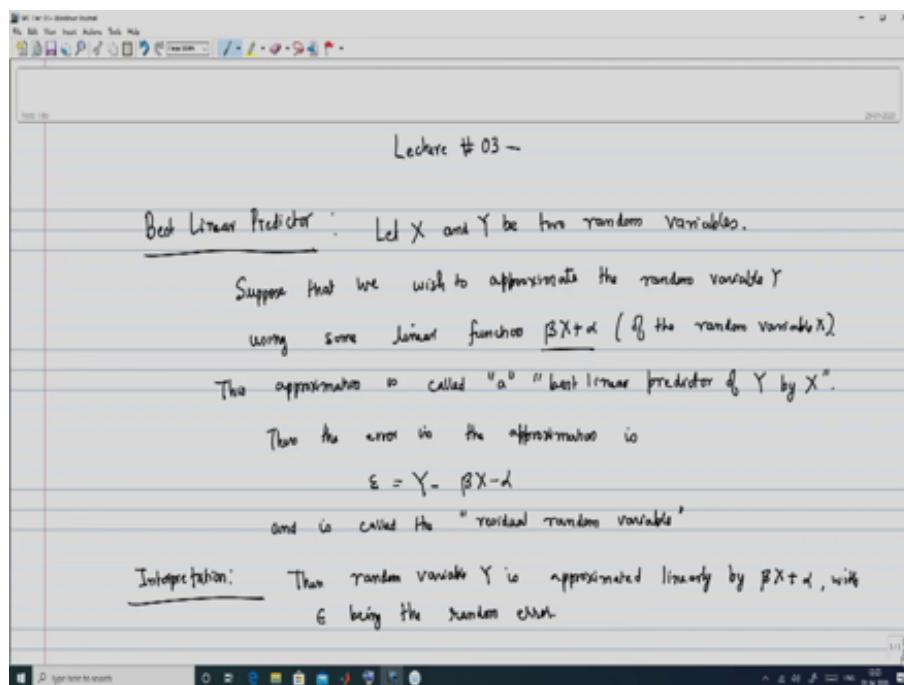 File Edit View Insert Actions Tools Help
Lecture # 03 –
Best Linear Predictor : Let X and Y be two random variables.
Suppose that we wish to approximate the random variable Y
using some linear function βX+α (of the random variable X)
This approximation is called "a" "best linear predictor of Y by X".
Then the error in the approximation is
ε = Y - βX-α
and is called the "residual random variable"
Interpretation: Then random variable Y is approximated linearly by βX+α, with
ϵ being the random error
1/1
Type here to search